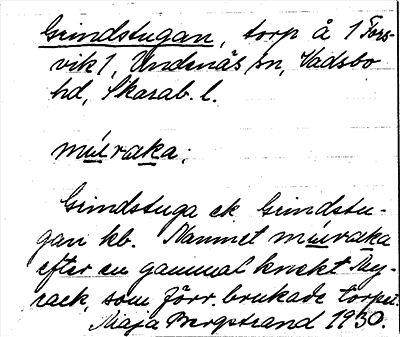 Grindstugan, torp å 1 Fors-
vik 1, Undenäs sn, Vadsbo
hd, Skarab. l.
múraka:
Grindstuga ek. Grindstu-
gan kb. Namnet múraka
efter en gammal knekt Mey-
rack, som förr brukade torpet.
Maja Bergstrand 1930.